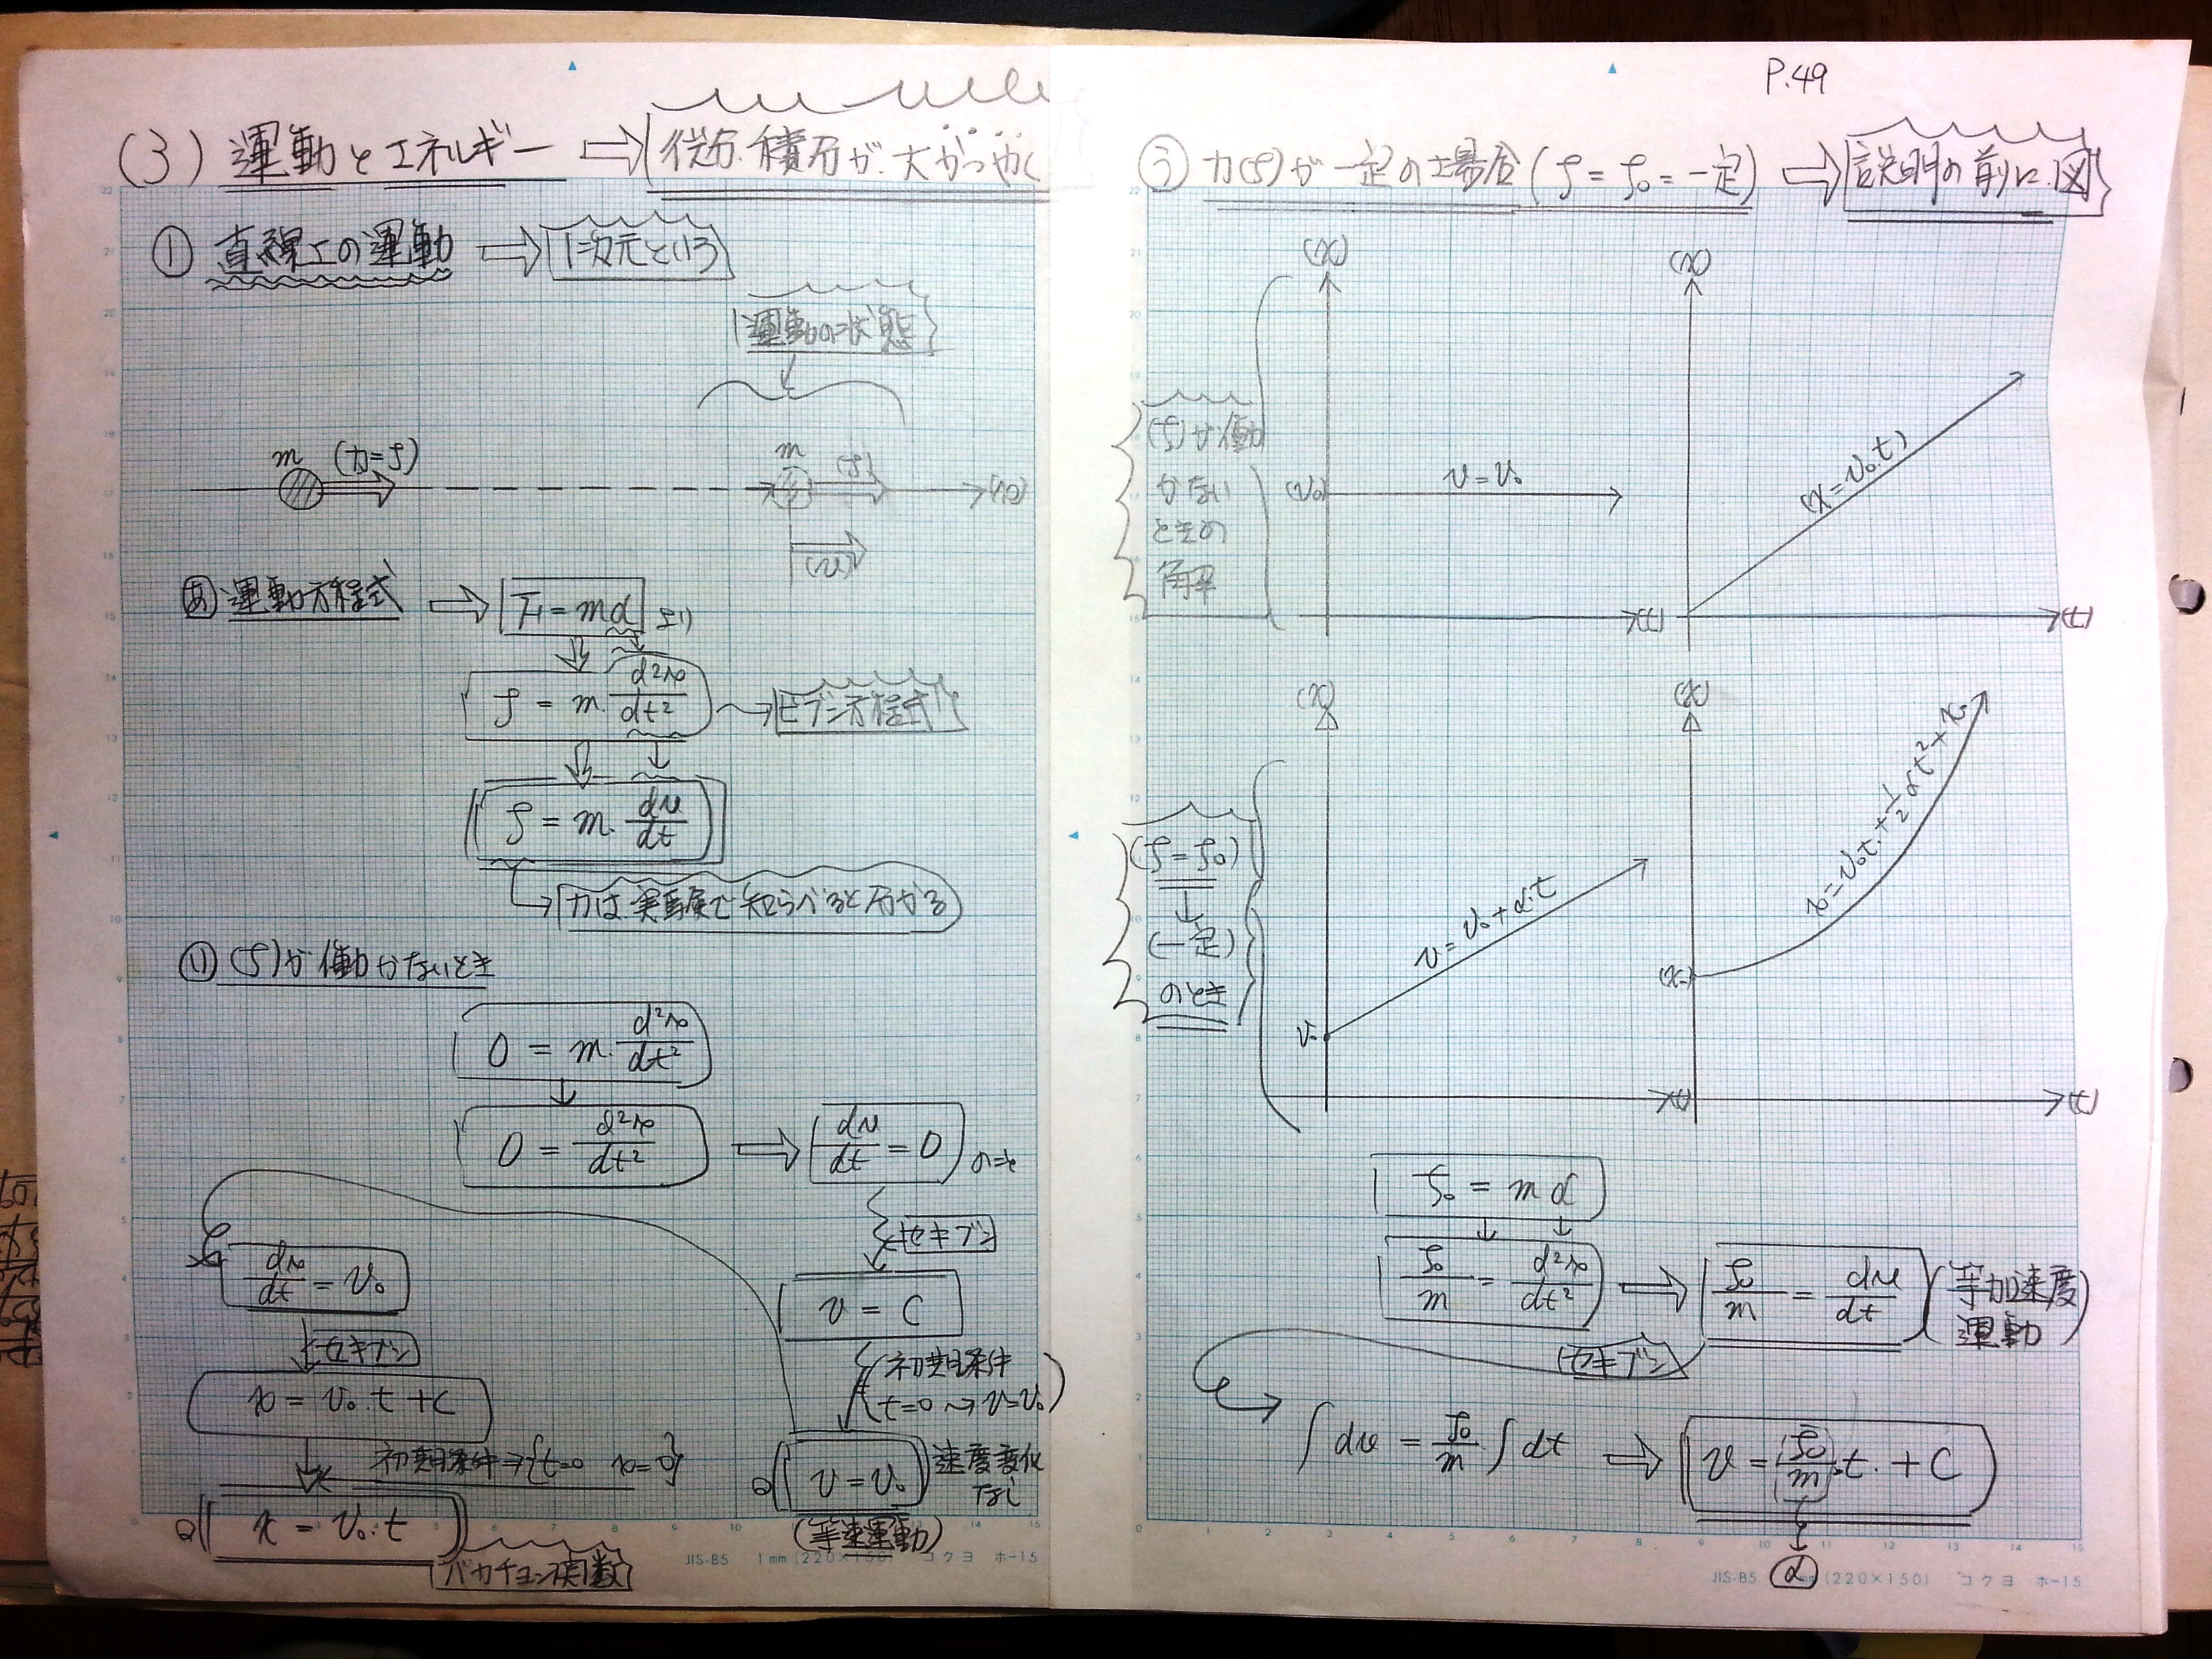 P.49
(3) 運動とエネルギー ⇒ 微分.積分が.大かつやく
① 直線上の運動 ⇒ 1次元という
運動の状態
m (力=f) m (f) (x)
(v)
あ 運動方程式 ⇒ F=mα より
f = m.d²x/dt² → ビブン方程式
f = m.dv/dt
力は.実験で知らべると分かる
い (f)が働かないとき
0 = m.d²x/dt²
0 = d²x/dt² ⇒ dv/dt = 0 のこと
セキブン
v = C
初期条件
t=0 → v=v₀
v = v₀ 速度変化なし
(等速運動)
dx/dt = v₀
セキブン
x = v₀.t + C
初期条件 → {t=0 x=0}
x = v₀.t
バカチョン関数
JIS-B5 1mm (220×150) コクヨ ホ-15
う 力(f)が一定の場合 (f = f₀ = 一定) ⇒ 説明の前に.図
(f)が働
かない
ときの
解
(x) (v₀) v = v₀ (t)
(x) (x = v₀.t) (t)
(f = f₀)
↓
(一定)
のとき
(x) v₀ v = v₀ + α.t (t)
(x) (x₀) x = v₀t + 1/2 αt² + x₀ (t)
f₀ = mα
f₀/m = d²x/dt² ⇒ f₀/m = dv/dt (等加速度運動)
セキブン
∫dv = f₀/m.∫dt ⇒ v = (f₀/m).t. + C
α
JIS-B5 mm (220×150) コクヨ ホ-15